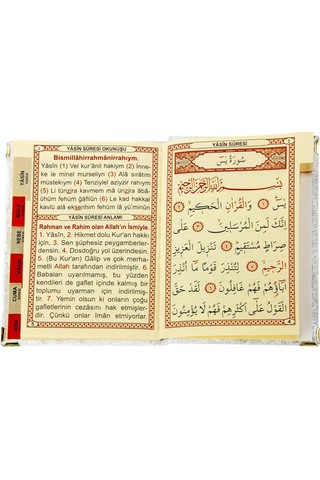 YÂSÎN SÛRESİ OKUNUŞU
Bismillâhirrahmânirrahıym.
Yâsîn (1) Vel kur'ânil hakiym (2) İnne-
ke le minel murseliyn (3) Alâ sırâtım
müstekıym (4) Tenziylel aziyzir rahıym
(5) Li tünzira kavmem mâ ünzira âbâ-
ühüm fehüm gâfilûn (6) Le kad hakkal
kavlü alâ ekserihim fehüm lâ yü'minûn
YÂSÎN SÛRESİ ANLAMI
Rahman ve Rahim olan Allah'ın İsmiyle.
1. Yâsîn, 2. Hikmet dolu Kur'an hakkı
için, 3. Sen şüphesiz peygamberler-
densin. 4. Dosdoğru yol üzerindesin.
5. (Bu Kur'an) Gâlip ve çok merha-
metli Allah tarafından indirilmiştir. 6.
Babaları uyarılmamış, bu yüzden
kendileri de gaflet içinde kalmış bir
toplumu uyarman için indirilmiş-
tir. 7. Yemin olsun ki onların çoğu
gafletlerinin cezasını hak etmişler-
dir. Çünkü onlar îmân etmiyorlar.
YÂSİN
MÜLK
NEBE
CUMA
YÂSÎN SÛRESİ
سُورَةُ يٰسٓ
بِسْمِ اللّٰهِ الرَّحْمٰنِ الرَّحِيمِ
يٰسٓ ﴿١﴾ وَالْقُرْاٰنِ الْحَكِيمِ ﴿٢﴾
اِنَّكَ لَمِنَ الْمُرْسَلِينَ ﴿٣﴾ عَلٰى
صِرَاطٍ مُسْتَقِيمٍ ﴿٤﴾ تَنْزِيلَ الْعَزِيزِ
الرَّحِيمِ ﴿٥﴾ لِتُنْذِرَ قَوْمًا مَٓا اُنْذِرَ
اٰبَٓاؤُهُمْ فَهُمْ غَافِلُونَ ﴿٦﴾ لَقَدْ حَقَّ
الْقَوْلُ عَلٰٓى اَكْثَرِهِمْ فَهُمْ لَا يُؤْمِنُونَ
4